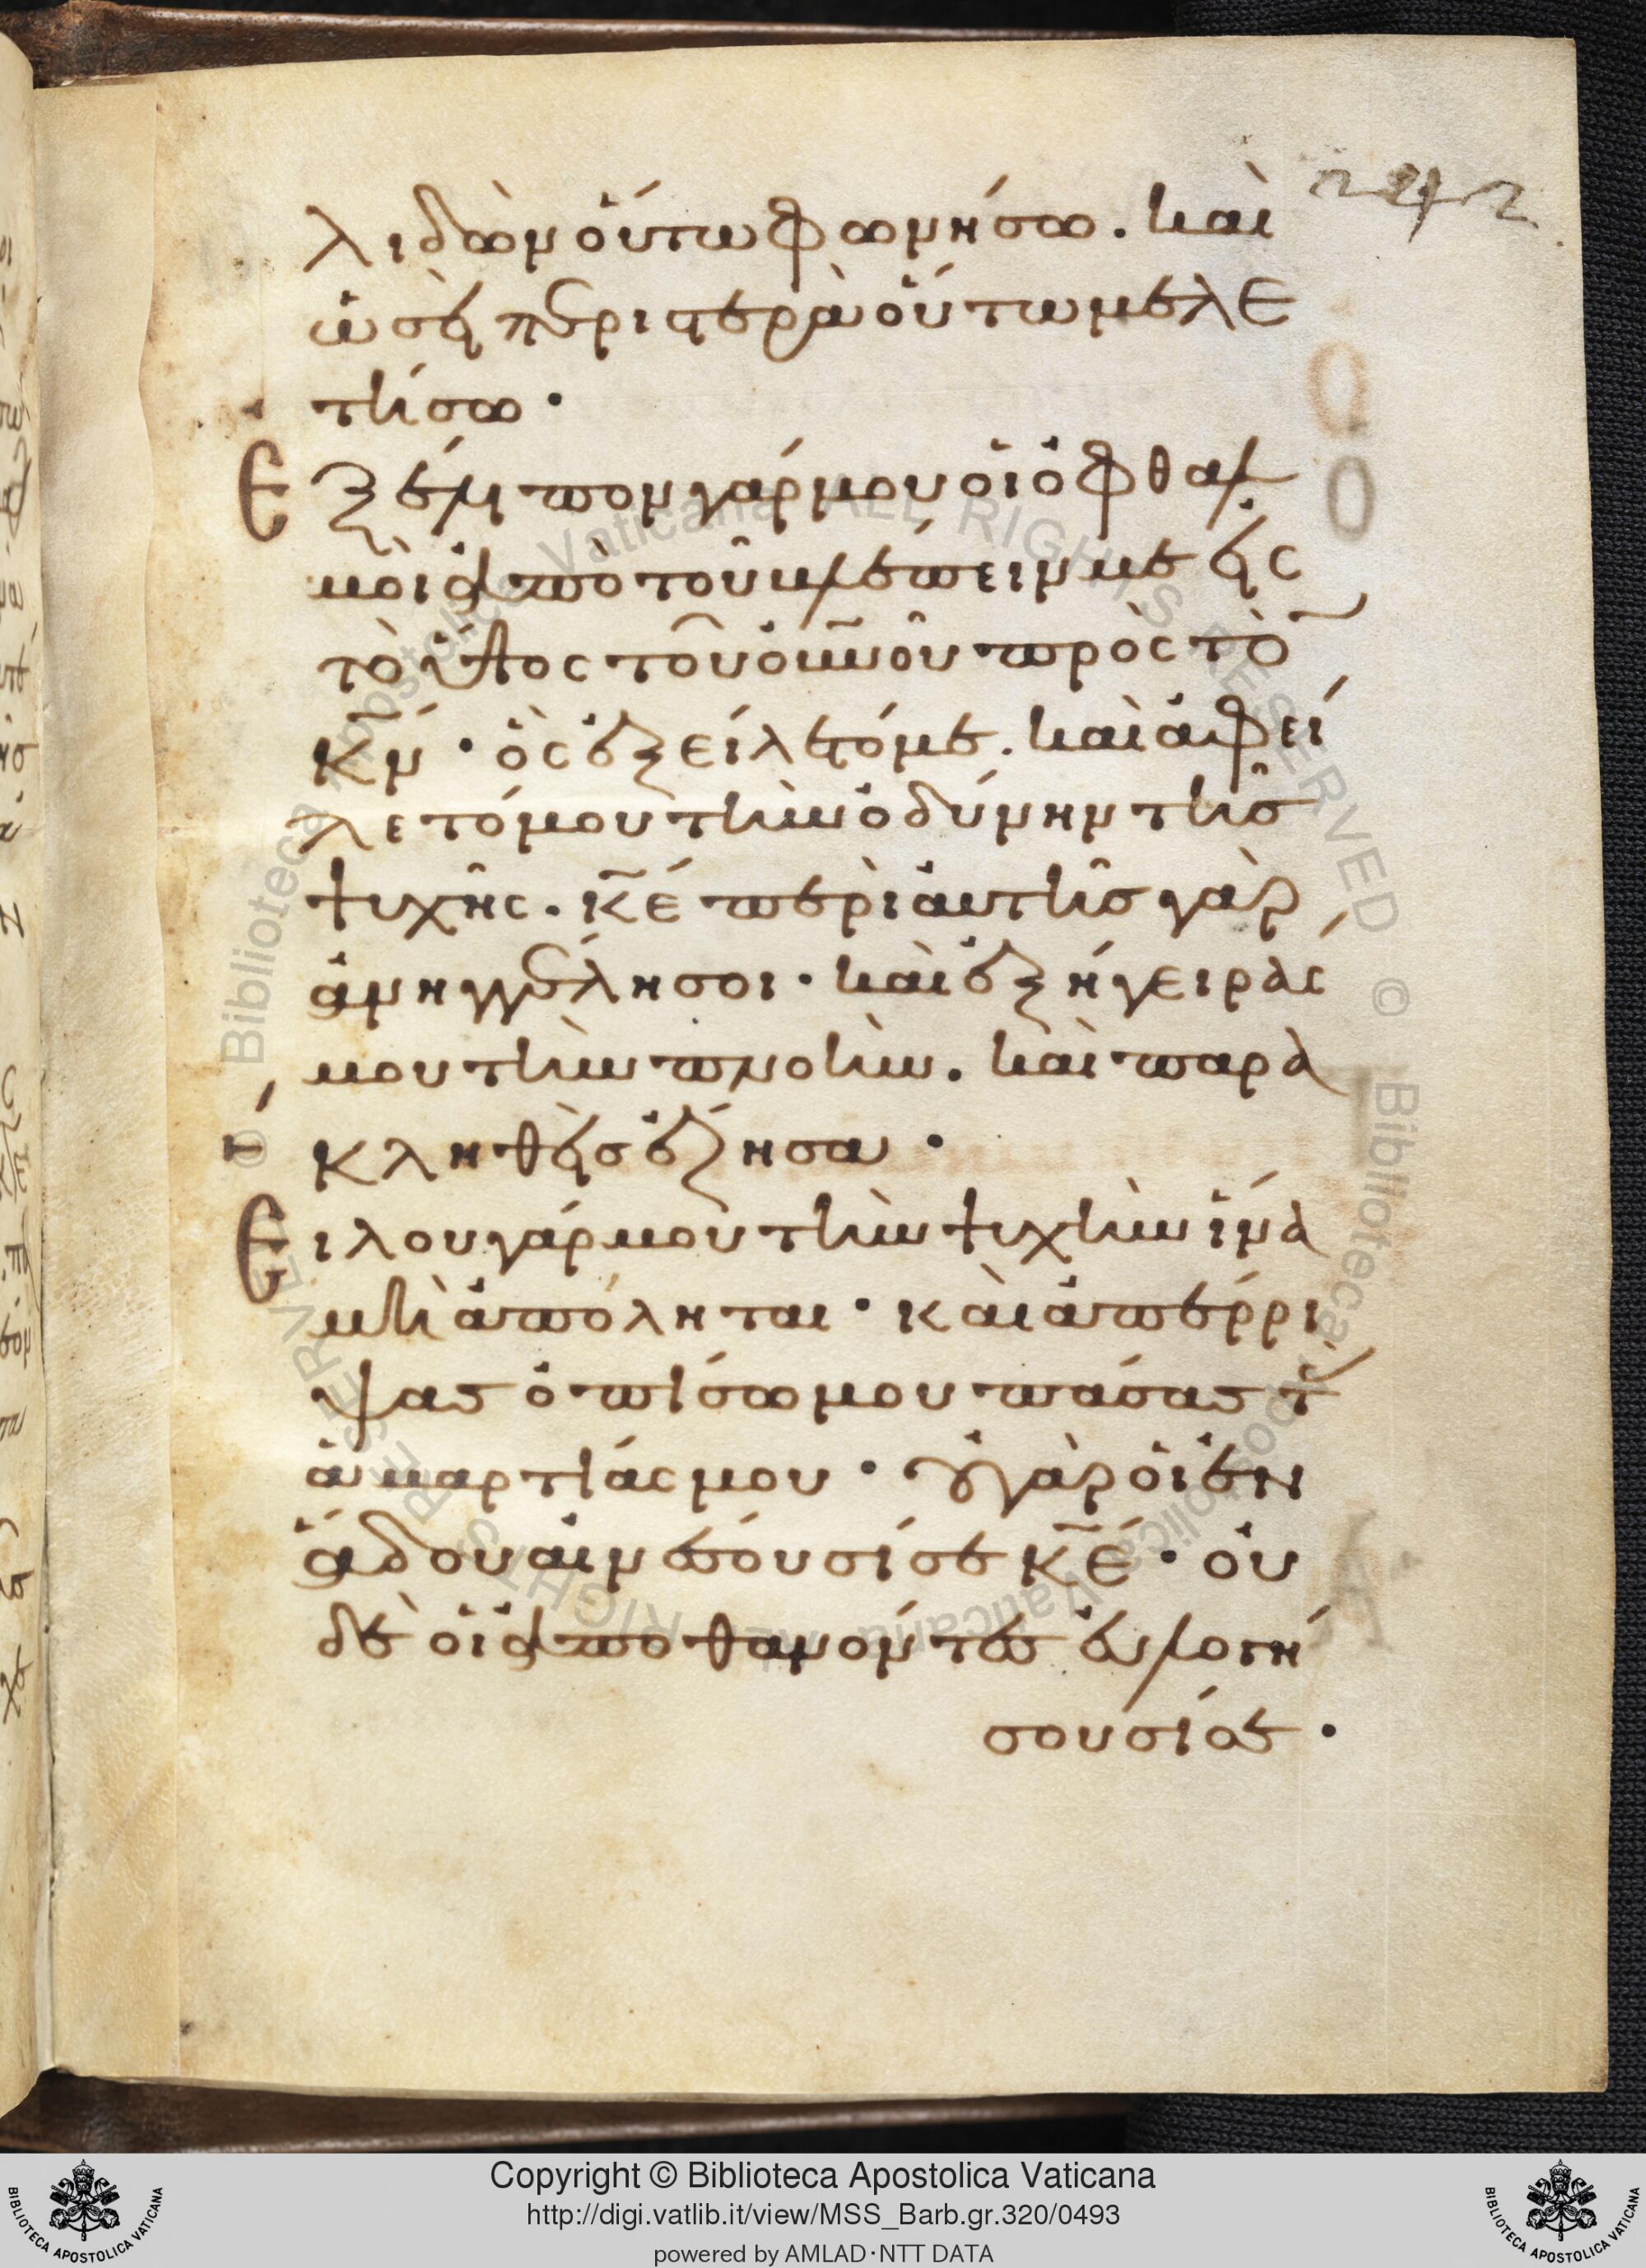 242
λιδὼν οὕτω φωνήσω. καὶ
ὡσεὶ περιστερὰ οὕτω μελε
τήσω·
Ἐξέλιπον γάρ μου οἱ ὀφθαλ
μοὶ ἀπὸ τοῦ βλέπειν με εἰς
τὸ ὕψος τοῦ οὐνοῦ πρὸς τὸ
κν· ὃς ἐξείλετό με. καὶ ἀφεί
λετό μου τὴν ὀδύνην τῆσ
ψυχῆς. κε περὶ αὐτῆσ γὰρ
ἀνηγγέλη σοι· καὶ ἐξήγειράς
μου τὴν πνοήν. καὶ παρα
κληθεὶσ ἔζησα·
Εἵλου γάρ μου τὴν ψυχὴν ἵνα
μὴ ἀπόληται· καὶ ἀπέρρι
ψας ὀπίσω μου πάσας τ
ἁμαρτίας μου· οὐ γὰρ οἱ ἐν
ἅδου αἰνέσουσί σε κε· οὐ
δὲ οἱ ἀποθανόντες εὐλογή
σουσί σε·
Copyright © Biblioteca Apostolica Vaticana
http://digi.vatlib.it/view/MSS_Barb.gr.320/0493
powered by AMLAD·NTT DATA
BIBLIOTECA APOSTOLICA VATICANA
BIBLIOTECA APOSTOLICA VATICANA